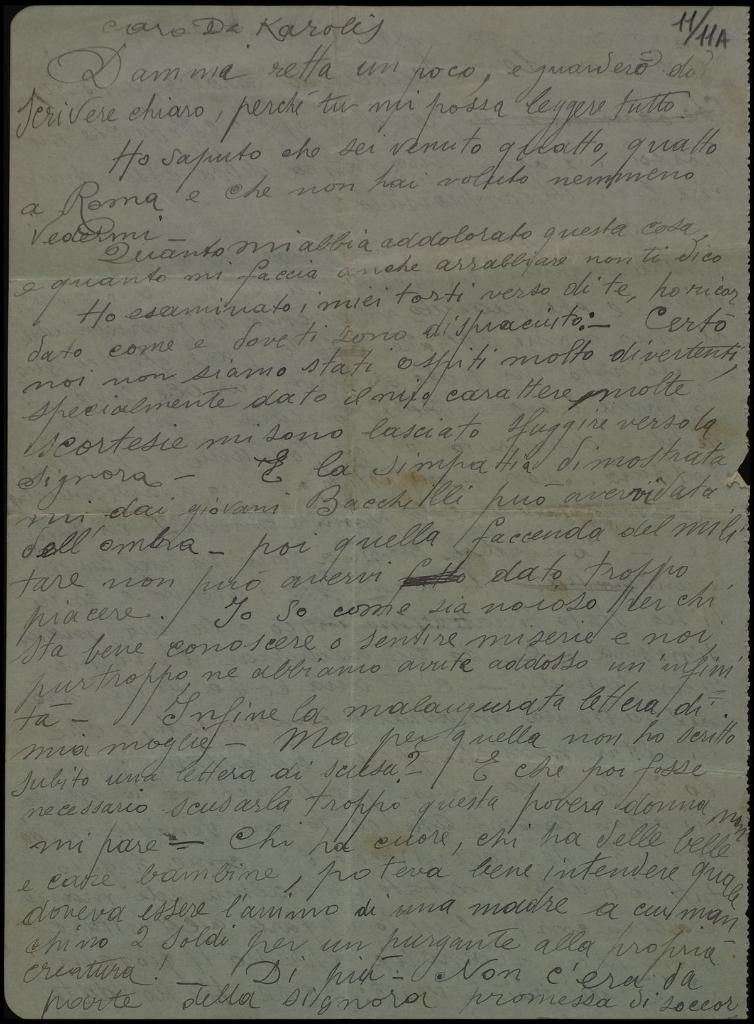 11/11A
caro De Karolis
Dammi retta un poco, e guarderò di
scrivere chiaro, perché tu mi possa leggere tutto.
Ho saputo che sei venuto quatto, quatto
a Roma e che non hai voluto nemmeno
vedermi —
Quanto mi abbia addolorato questa cosa,
e quanto mi faccia anche arrabbiare non ti dico
Ho esaminato i miei torti verso di te, ho ricor
dato come e dove ti sono dispiaciuto: — Certo
noi non siamo stati ospiti molto divertenti,
specialmente dato il mio carattere, molte
scortesie mi sono lasciato sfuggire verso la
Signora — E la simpatia dimostrata
mi dai giovani Bacchelli può avervi data
dell'ombra — poi quella faccenda del mili
tare non può avervi dato troppo
piacere. Io so come sia noioso per chi
sta bene conoscere o sentire miserie e noi,
purtroppo, ne abbiamo avute addosso un'infini
tà — Infine la malaugurata lettera di
mia moglie — Ma per quella non ho scritto
subito una lettera di scusa? — E che poi fosse
necessario scusarla troppo questa povera donna, non
mi pare = Chi ha cuore, chi ha delle belle
e care bambine, poteva bene intendere quale
doveva essere l'animo di una madre a cui man
chino 2 soldi per un purgante alla propria
creatura! — Di più — Non c'era da
parte della signora promessa di soccor